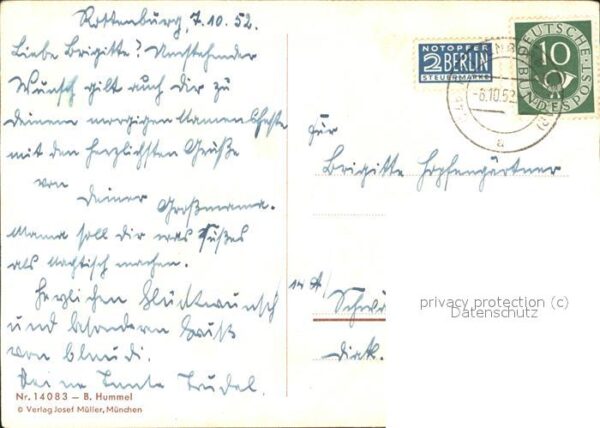 Rottenburg, 7.10.52.
Liebe Brigitte! Umstehender
Wunsch gilt auch dir zu
deinem morgigen Namensfeste
mit den herzlichsten Grüße
von
deiner Großmama.
Mama soll dir was Süßes
als Nachtisch machen.
Herzlichen Glückwunsch
und besonderen Gruß
von Claudi.
Deine Tante Trudel.
Nr. 14083 — B. Hummel
© Verlag Josef Müller, München
NOTOPFER
2 BERLIN
STEUERMARKE
DEUTSCHE
10
BUNDESPOST
-8.10.52
a
Für
Brigitte Hopfengärtner
14 a
Schwä
Diak.
privacy protection (c)
Datenschutz